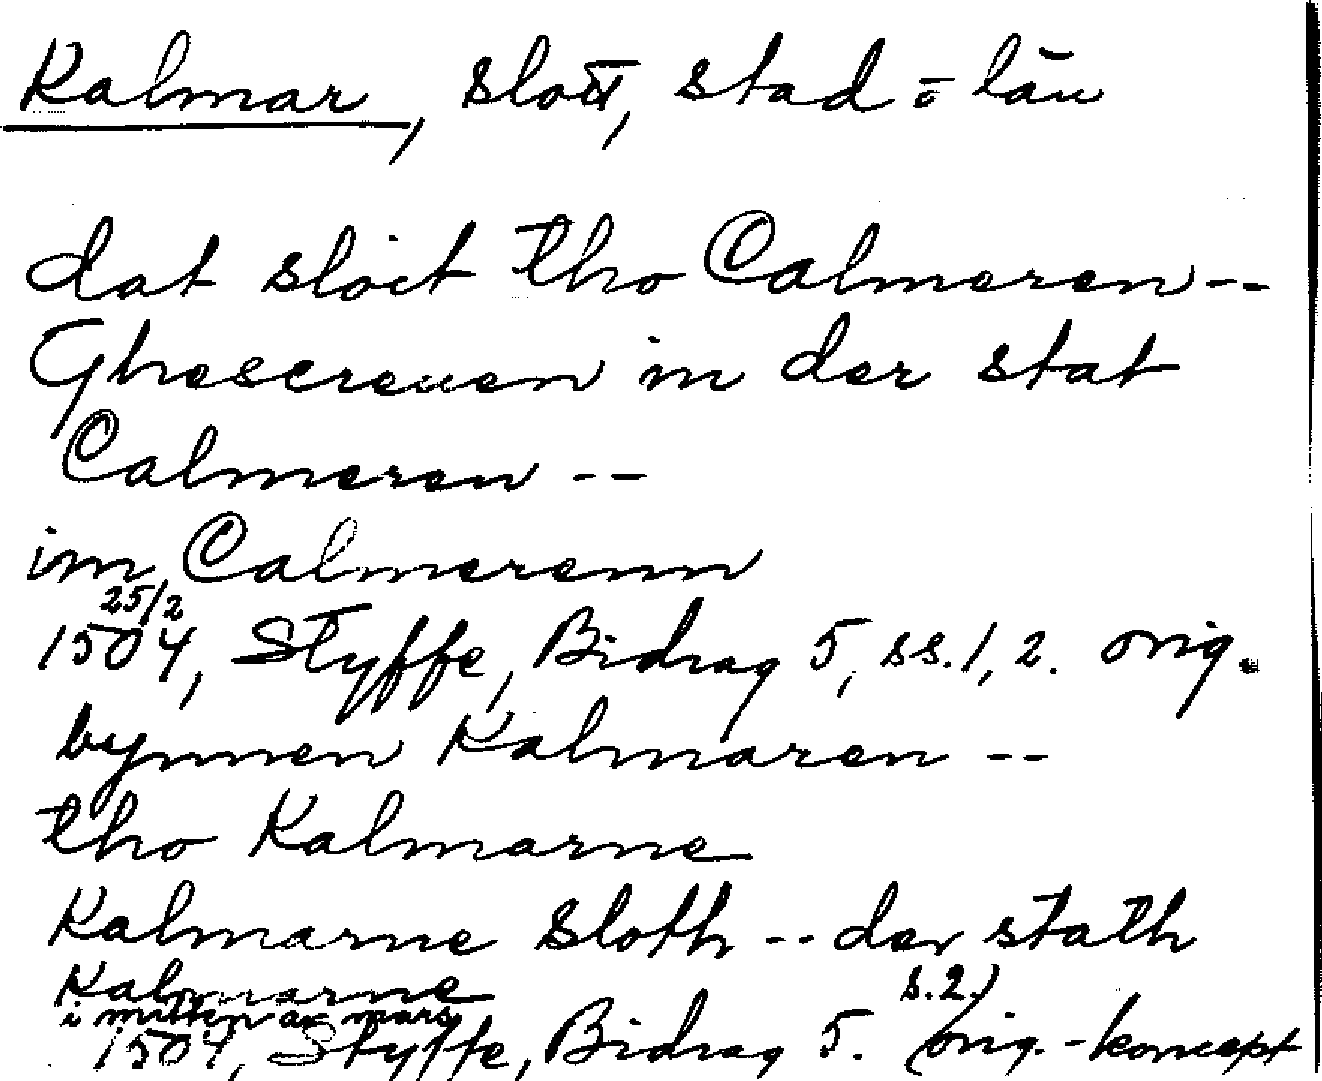 Kalmar, slott, stad o. län
dat sloit tho Calmeren --
Ghescreuen in der stat
Calmeren --
im Calmerenn
25/2
1504, Styffe, Bidrag 5, ss. 1, 2. orig.
bynnen Kalmaren --
tho Kalmarne
Kalmarne sloth -- der stath
Kalmarne
i mitten av mars s. 2.)
1504, Styffe, Bidrag 5. (orig.-koncept